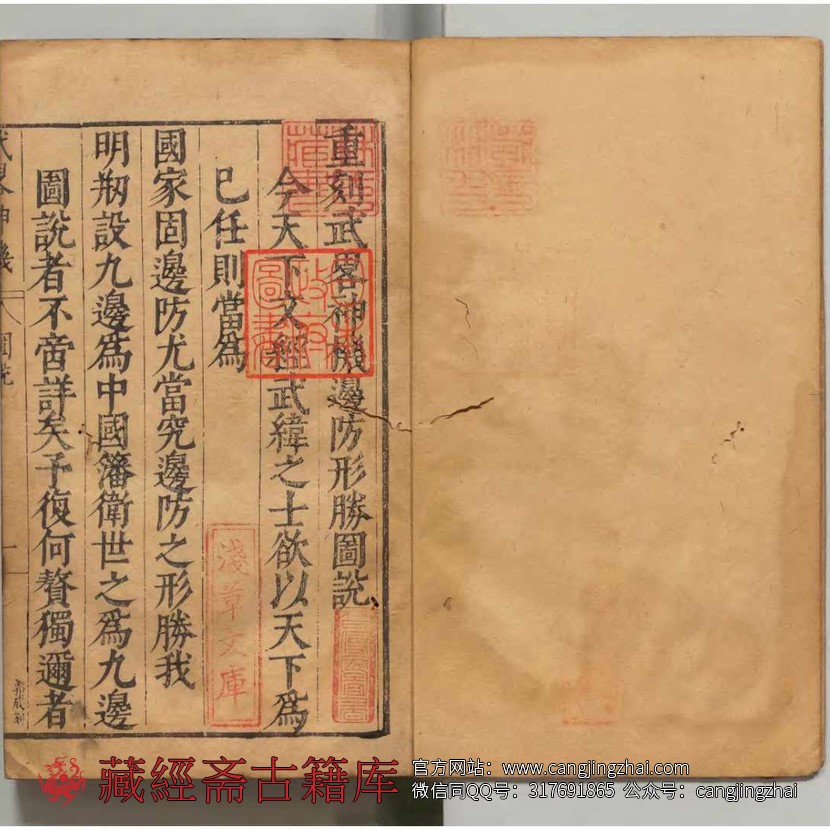 重刻武畧神機邊防形勝圖說
今天下文經武緯之士欲以天下爲
己任則當爲
國家固邊防尤當究邊防之形勝我
明剏設九邊爲中國籓衛世之爲九邊
圖說者不啻詳矣予復何贅獨邇者
圖說
淺草文庫
藏經斋古籍库
官方网站：www.cangjingzhai.com
微信同QQ号：317691865 公众号：cangjingzhai